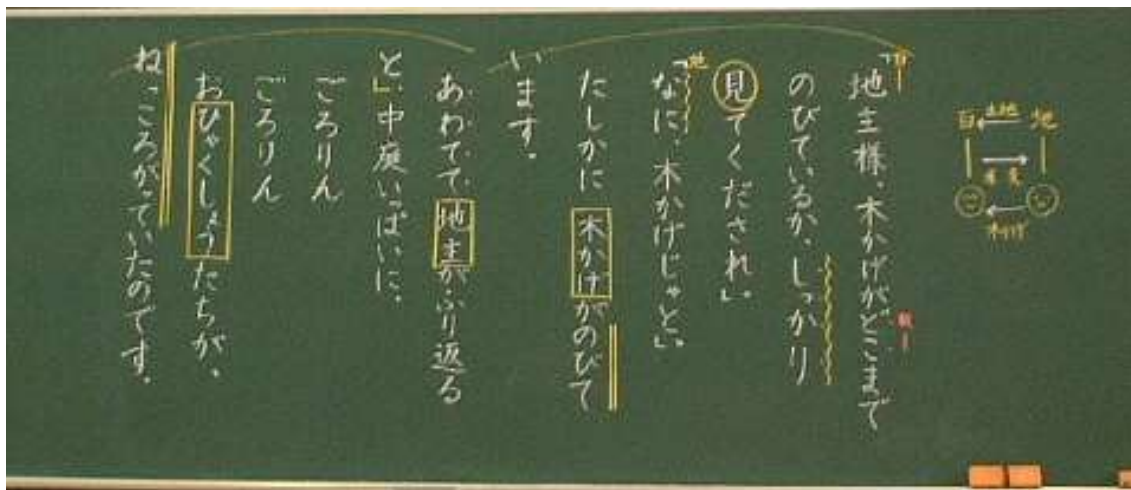 地
土地
百
木かげ
百
「地主様、木かげがどこまで
のびているか、しっかり
見てくだされ」。
地
「なに、木かげじゃと」。
たしかに 木かげがのびて
います。
あわてて地主がふり返る
と、中庭いっぱいに、
ごろりん
ごろりん
おひゃくしょうたちが、
ねっころがっていたのです。